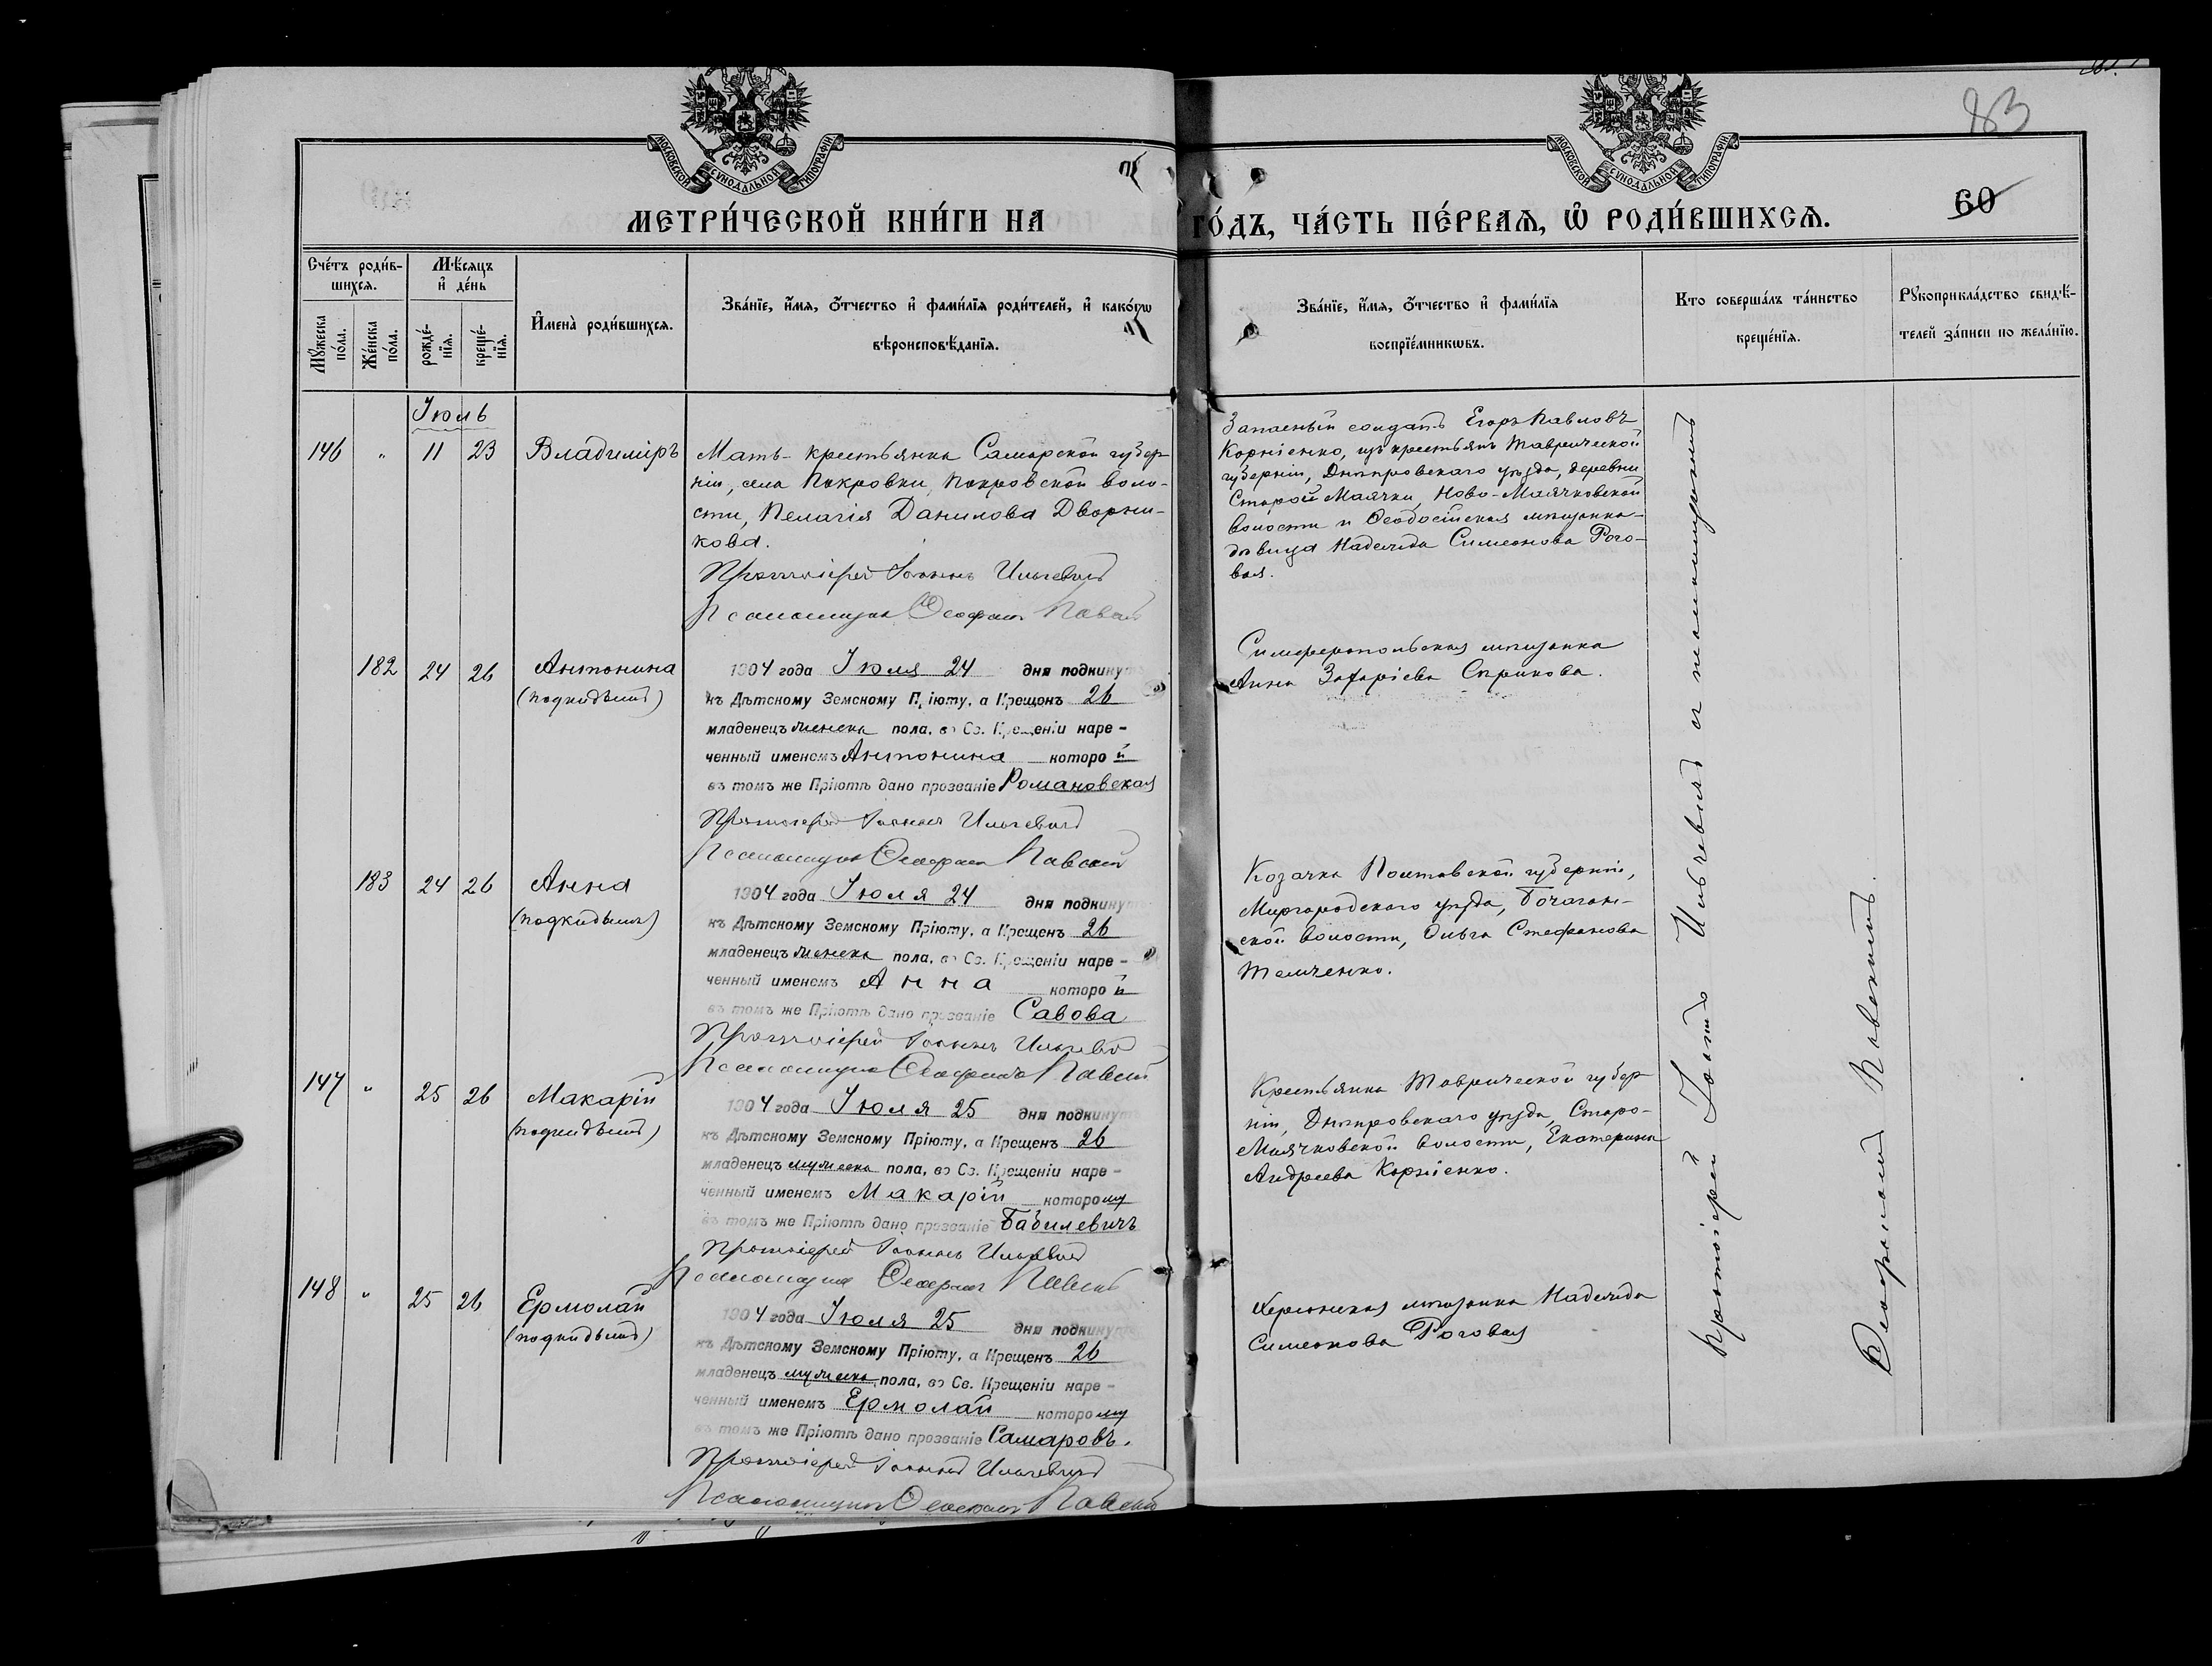 83
60
МОСКОВСКОЙ СУНОДАЛЬНОЙ ТИПОГРАФІИ
МОСКОВСКОЙ СУНОДАЛЬНОЙ ТИПОГРАФІИ
МЕТРИ́ЧЕСКОЙ КНИ́ГИ НА ГО́ДЪ, ЧА́СТЬ ПЕ́РВАѦ, Ѡ РОДИ́ВШИХСѦ.
Сче́тъ роди́в-
шихсѧ.
Мꙋ́жеска
по́ла.
Же́нска
по́ла.
Мѣ́сѧцъ
и҆ де́нь
рожде́-
нїѧ.
креще́-
нїѧ.
И҆мена̀ роди́вшихсѧ.
Зва́нїе, и҆́мѧ, о҆́тчество и҆ фами́лїѧ роди́телей, и҆ како́гѡ
вѣроисповѣ́данїѧ.
Зва́нїе, и҆́мѧ, о҆́тчество и҆ фами́лїѧ
воспрїе́мникѡвъ.
Кто соверша́лъ та́инство
креще́нїѧ.
Рꙋкоприкла́дство свидѣ́-
телей за́писи по жела́нїю.
Іюль
146 " 11 23 Владиміръ
Мать - крестьянка Самарской губер-
ніи, села Покровки, Покровской воло-
сти, Пелагія Данилова Дворни-
кова.
Протоіерей Іоаннъ Ильчевичъ
Псаломщикъ Ѳеофанъ Павскій
Запасный солдатъ Егоръ Павловъ
Корніенко, изъ крестьянъ Таврической
губерніи, Днѣпровскаго уѣзда, деревни
Старой Маячки, Ново-Маячковской
волости и Ѳеодосійская мѣщанка-
дѣвица Надежда Симеонова Рого-
вая.
182 24 26 Антонина
(подкидышъ)
1904 года Іюля 24 дня подкинутъ
къ Дѣтскому Земскому Пріюту, а Крещенъ 26
младенецъ женска пола, въ Св. Крещеніи наре-
ченный именемъ Антонина которой
въ томъ же Пріютѣ дано прозваніе Романовская
Протоіерей Іоаннъ Ильчевичъ
Псаломщикъ Ѳеофанъ Павскій
Симферопольская мѣщанка
Анна Захаріева Сприкова.
183 24 26 Анна
(подкидышъ)
1904 года Іюля 24 дня подкинутъ
къ Дѣтскому Земскому Пріюту, а Крещенъ 26
младенецъ женска пола, въ Св. Крещеніи наре-
ченный именемъ Анна которой
въ томъ же Пріютѣ дано прозваніе Савова
Протоіерей Іоаннъ Ильчевичъ
Псаломщикъ Ѳеофанъ Павскій
Козачка Полтавской губерніи,
Миргородскаго уѣзда,
ской волости, Ольга Стефанова
Темченко.
147 " 25 26 Макарій
(подкидышъ)
1904 года Іюля 25 дня подкинутъ
къ Дѣтскому Земскому Пріюту, а Крещенъ 26
младенецъ мужеска пола, въ Св. Крещеніи наре-
ченный именемъ Макарій которому
въ томъ же Пріютѣ дано прозваніе Бабилевичъ
Протоіерей Іоаннъ Ильчевичъ
Псаломщикъ Ѳеофанъ Павскій
Крестьянка Таврической губер
ніи, Днѣпровскаго уѣзда, Старо-
Маячковской волости, Екатерина
Андреева Корніенко.
148 " 25 26 Ермолай
(подкидышъ)
1904 года Іюля 25 дня подкинутъ
къ Дѣтскому Земскому Пріюту, а Крещенъ 26
младенецъ мужеска пола, въ Св. Крещеніи наре-
ченный именемъ Ермолай которому
въ томъ же Пріютѣ дано прозваніе Самаровъ.
Протоіерей Іоаннъ Ильчевичъ
Псаломщикъ Ѳеофанъ Павскій
Херсонская мѣщанка Надежда
Симеонова Роговая
Протоіерей Іоаннъ Ильчевичъ съ псаломщикомъ
Ѳеофаномъ Павскимъ.